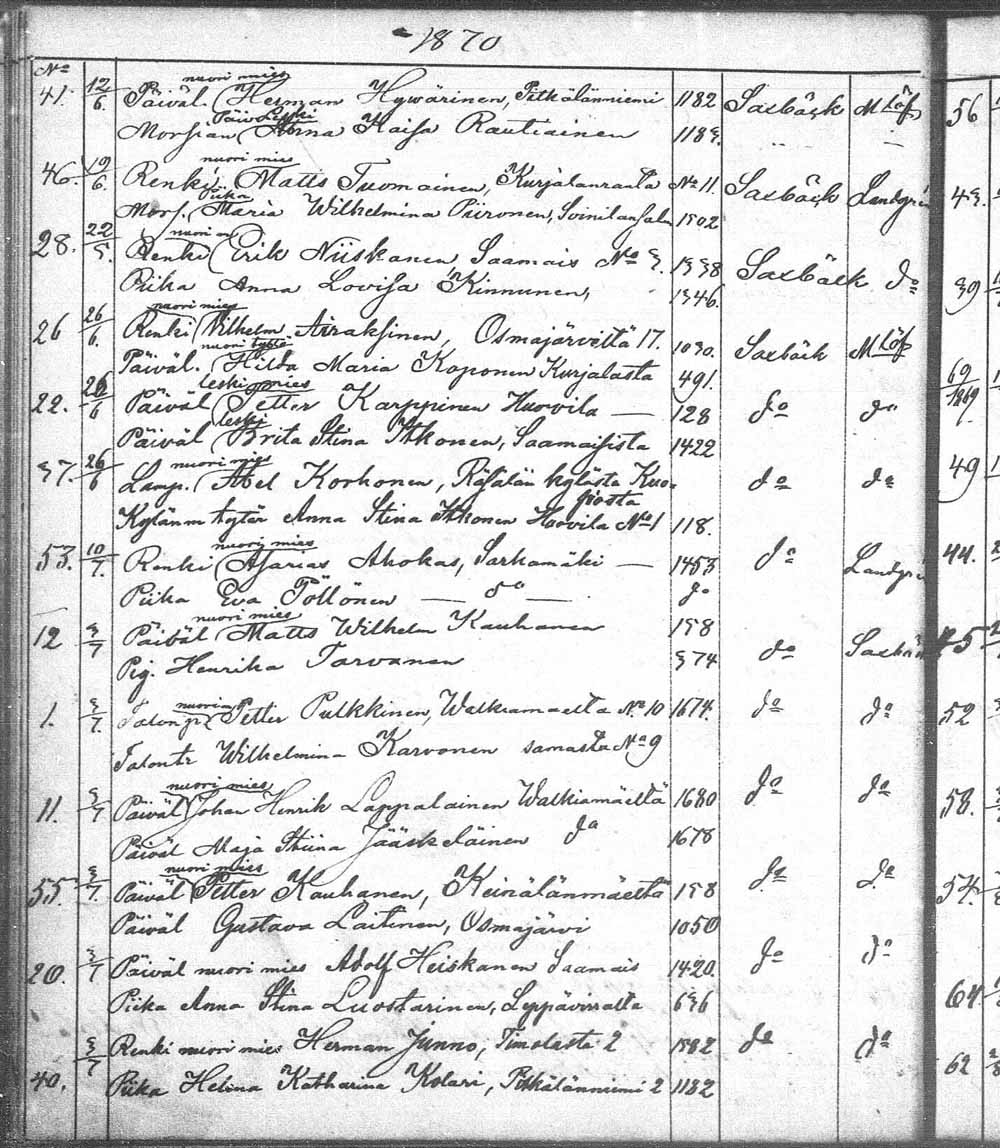 1870
No
nuori mies
41. 12/6. Päiväl. (Herman Hywärinen, Pitkälänniemi 1182 Saxbäck M Löf 56
Päiv Leski
Morsian (Anna Kaisa Rautiainen 1183.
nuori mies
46. 19/6. Renki. (Matts Tuomainen, Kurjalanranta No 11. Saxbäck Landgrén 43.
Piika
Mors. (Maria Wilhelmina Piironen, Soinilansalm 1502
nuori m
28. 22/5. Renki (Erik Niiskanen Saamais No 3. 1338 Saxbäck do 39
Piika Anna Lovisa Kinnunen, 1346.
nuori mies
26 26/6. Renki (Wilhelm Airaksinen, Osmajärveltä 17. 1030. Saxbäck M Löf
nuori tyttö
Päiväl. (Hilda Maria Koponen Kurjalasta 491. 69/1869
leski mies
22. 26/6 Päiväl (Petter Karppinen Huovila — 128 do do
leski
Päiväl (Brita Stina Itkonen, Saamaisista 1422
nuori mies
37. 26/6 Lamp. (Abel Korhonen, Räsälän kylästä Kuo- do do 49
piosta
Kylänm tytär Anna Stina Itkonen Huovila No 1 118.
nuori mies
53. 10/7. Renki (Asarias Ahokas, Sarkamäki — 1453 do Landgré 44.
Piika Eva Pöllönen — do — do
nuori mies
12 3/7 Päiväl (Matts Wilhelm Kauhanen 158 do Saxbäck 45
Pig. Henrika Tarvanen 374
nuori m
1. 3/7. Talonp. (Petter Pulkkinen, Walkiamäeltä No 10 1674. do do 52
Talontr Wilhelmina Karvonen samasta No 9
nuori mies
11. 3/7 Päiväl (Johan Henrik Lappalainen Walkiamäeltä 1680 do do 58.
Päiväl Maja Stiina Jääskeläinen do 1678
nuori mies
55. 3/7. Päiväl (Petter Kauhanen, Keinälänmäeltä 158 do do 54.
Päiväl Gustava Laitinen, Osmajärvi 1050
20. 3/7 Päiväl nuori mies Adolf Heiskanen Saamais 1420. do do
Piika Anna Stina Luostarinen, Leppävirralta 636 64.
3/7 Renki nuori mies Herman Junno, Timolasta 2 1582 do do 62
40. Piika Helena Katharina Kolari, Pitkälänniemi 2 1182